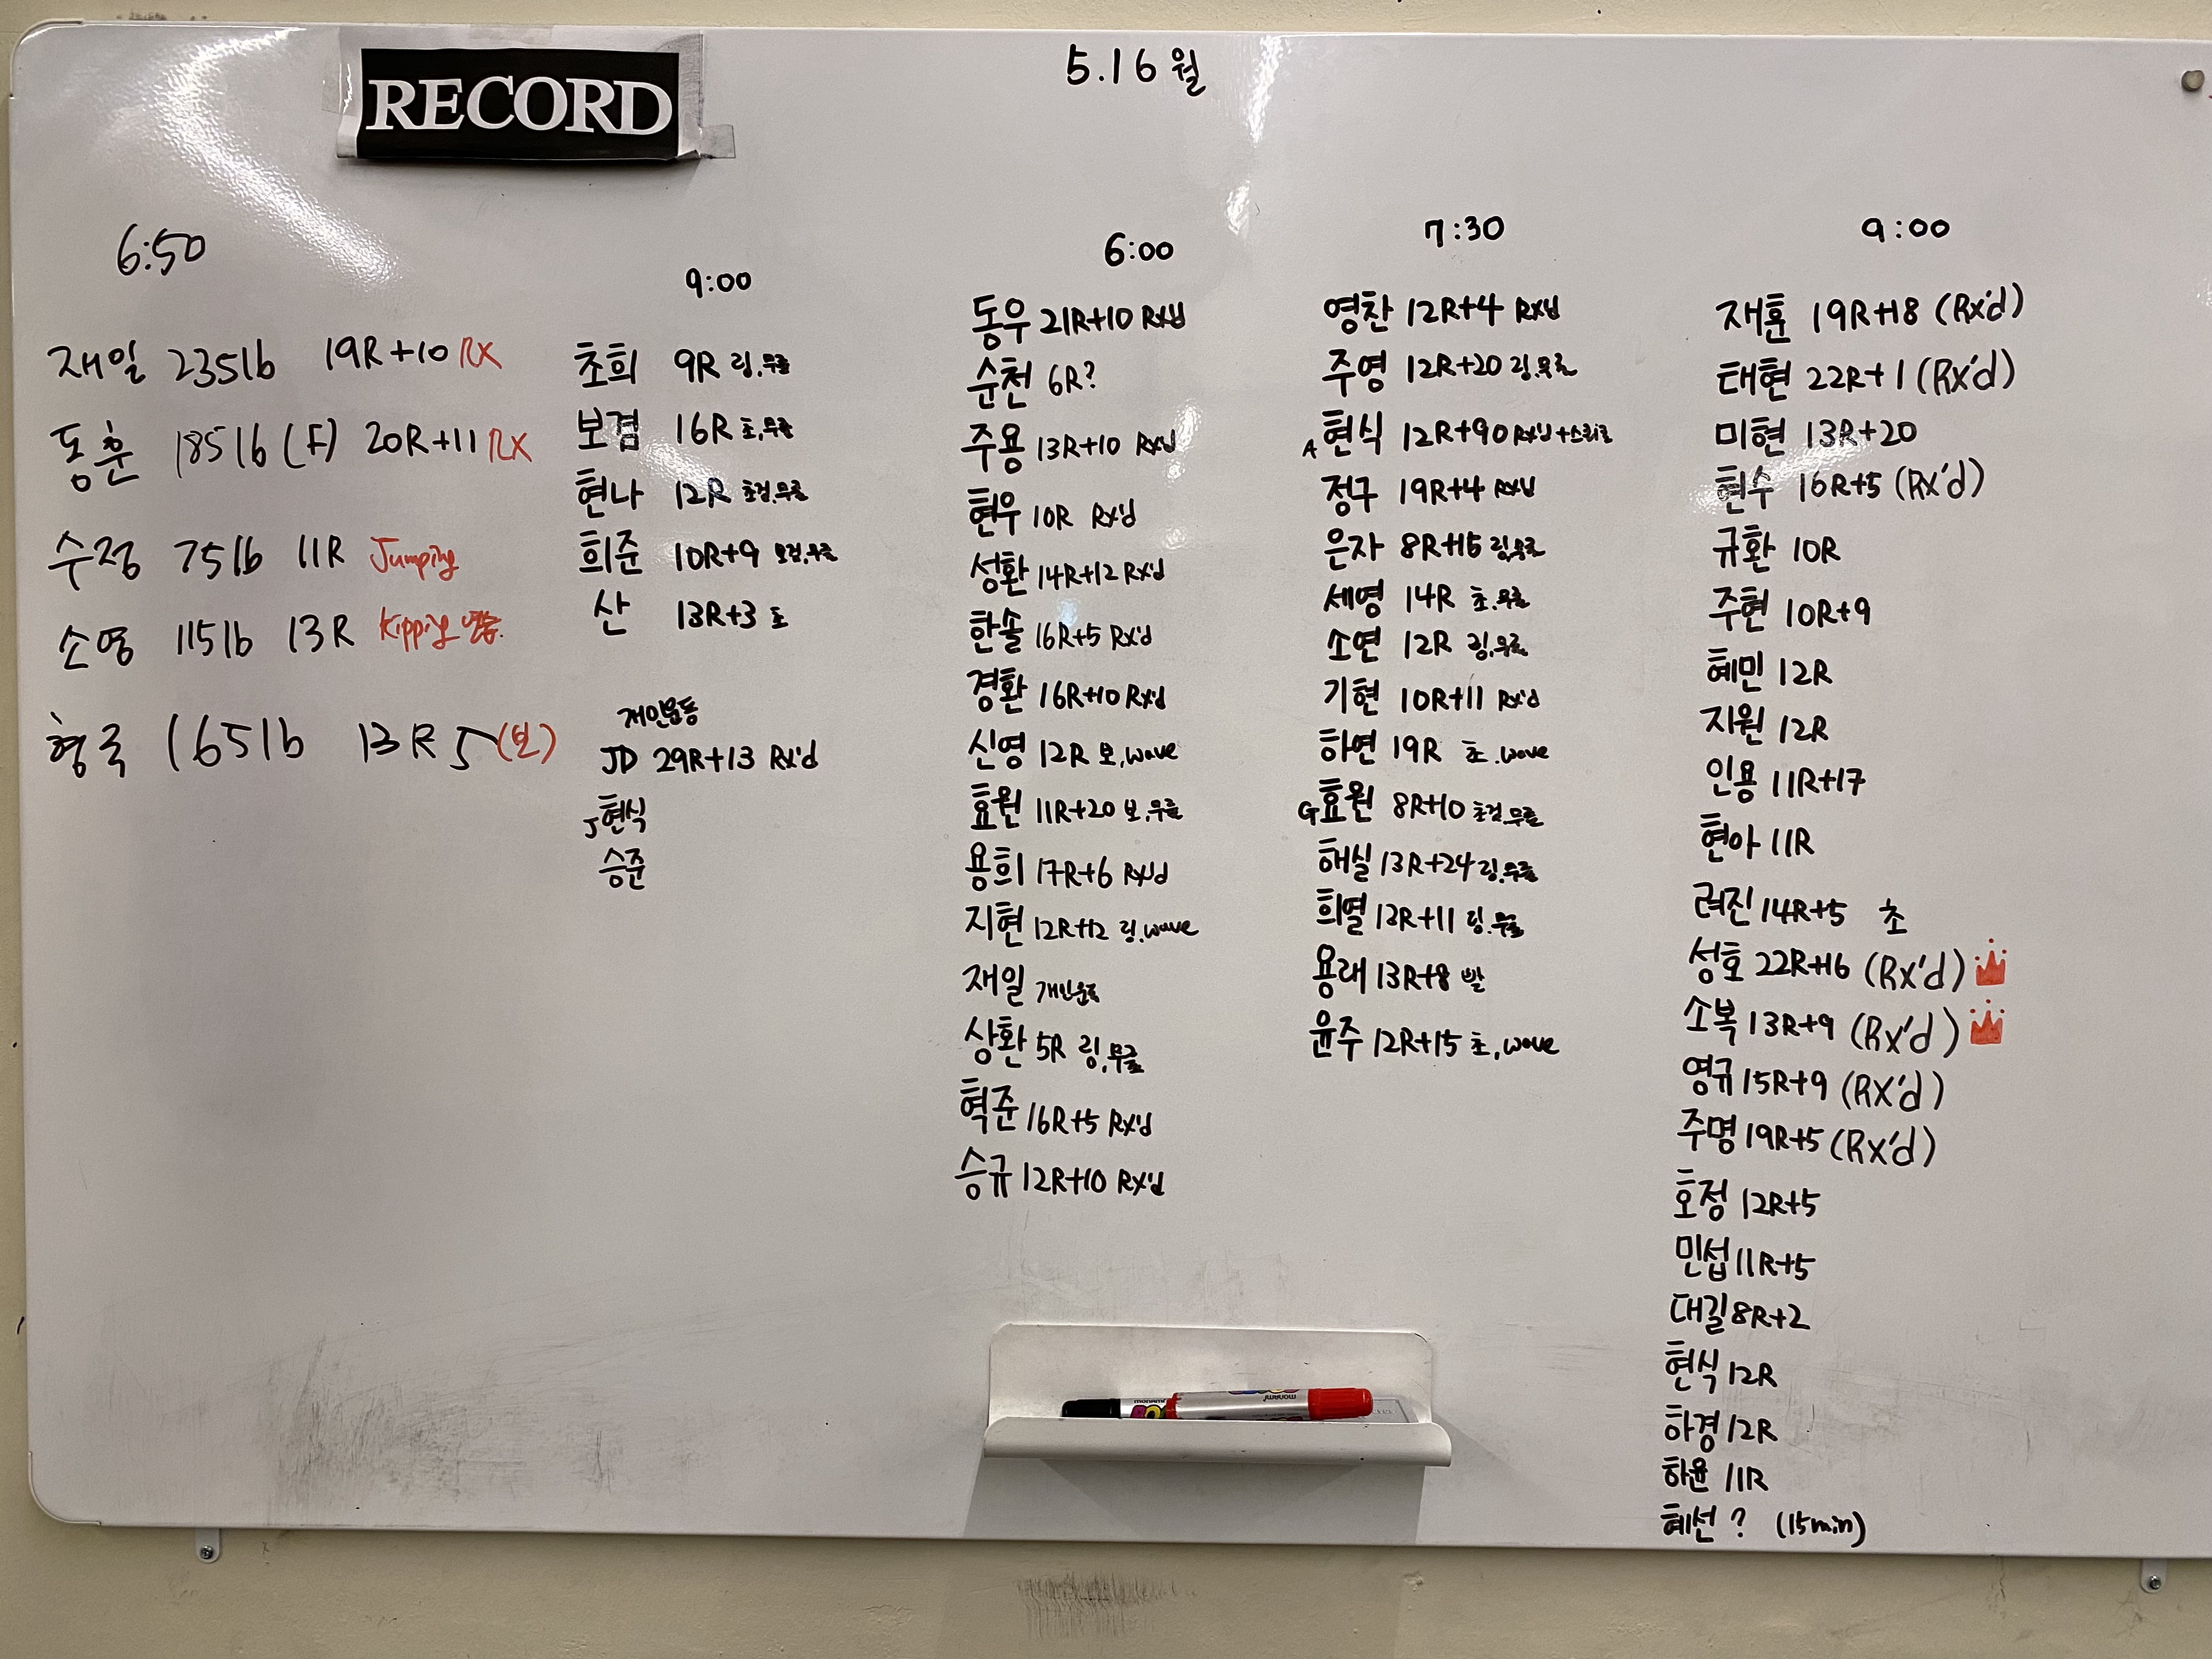 RECORD
5.16 월
6:50
재일 235lb 19R+10 RX
동훈 185lb (F) 20R+11 RX
수정 75lb 11R Jumping
소영 115lb 13R Kipping
형국 165lb 13R 5 (보)
9:00
초희 9R 링.무릎
보겸 16R 초.무릎
현나 12R 초검.무릎
희준 10R+9 보검.무릎
산 13R+3 초
개인운동
JD 29R+13 Rx'd
J현식
승준
6:00
동우 21R+10 Rx'd
순천 6R?
주용 13R+10 Rx'd
현우 10R Rx'd
성환 14R+12 Rx'd
한솔 16R+5 Rx'd
경환 16R+10 Rx'd
신영 12R 보,wave
효원 11R+20 보,무릎
용희 17R+6 Rx'd
지현 12R+12 링,wave
재일 개인운동
상환 5R 링,무릎
혁준 16R+5 Rx'd
승규 12R+10 Rx'd
7:30
영찬 12R+4 Rx'd
주영 12R+20 링.무릎
A현식 12R+90 Rx'd
정구 19R+4 Rx'd
은자 8R+15 링.무릎
세영 14R 초.무릎
소연 12R 링.무릎
기현 10R+11 Rx'd
하연 19R 초.wave
G효원 8R+10 초검.무릎
해실 13R+24 링.무릎
희열 13R+11 링.무릎
용래 13R+8 빨
윤주 12R+15 초,wave
9:00
재훈 19R+18 (Rx'd)
태현 22R+1 (Rx'd)
미현 13R+20
현수 16R+5 (Rx'd)
규환 10R
주현 10R+9
혜민 12R
지원 12R
인용 11R+17
현아 11R
려진 14R+5 초
성호 22R+16 (Rx'd)
소복 13R+9 (Rx'd)
영규 15R+9 (Rx'd)
주명 19R+5 (Rx'd)
호정 12R+5
민섭 11R+5
대길 8R+2
현식 12R
하경 12R
하윤 11R
혜선 ? (15min)
monami
monami